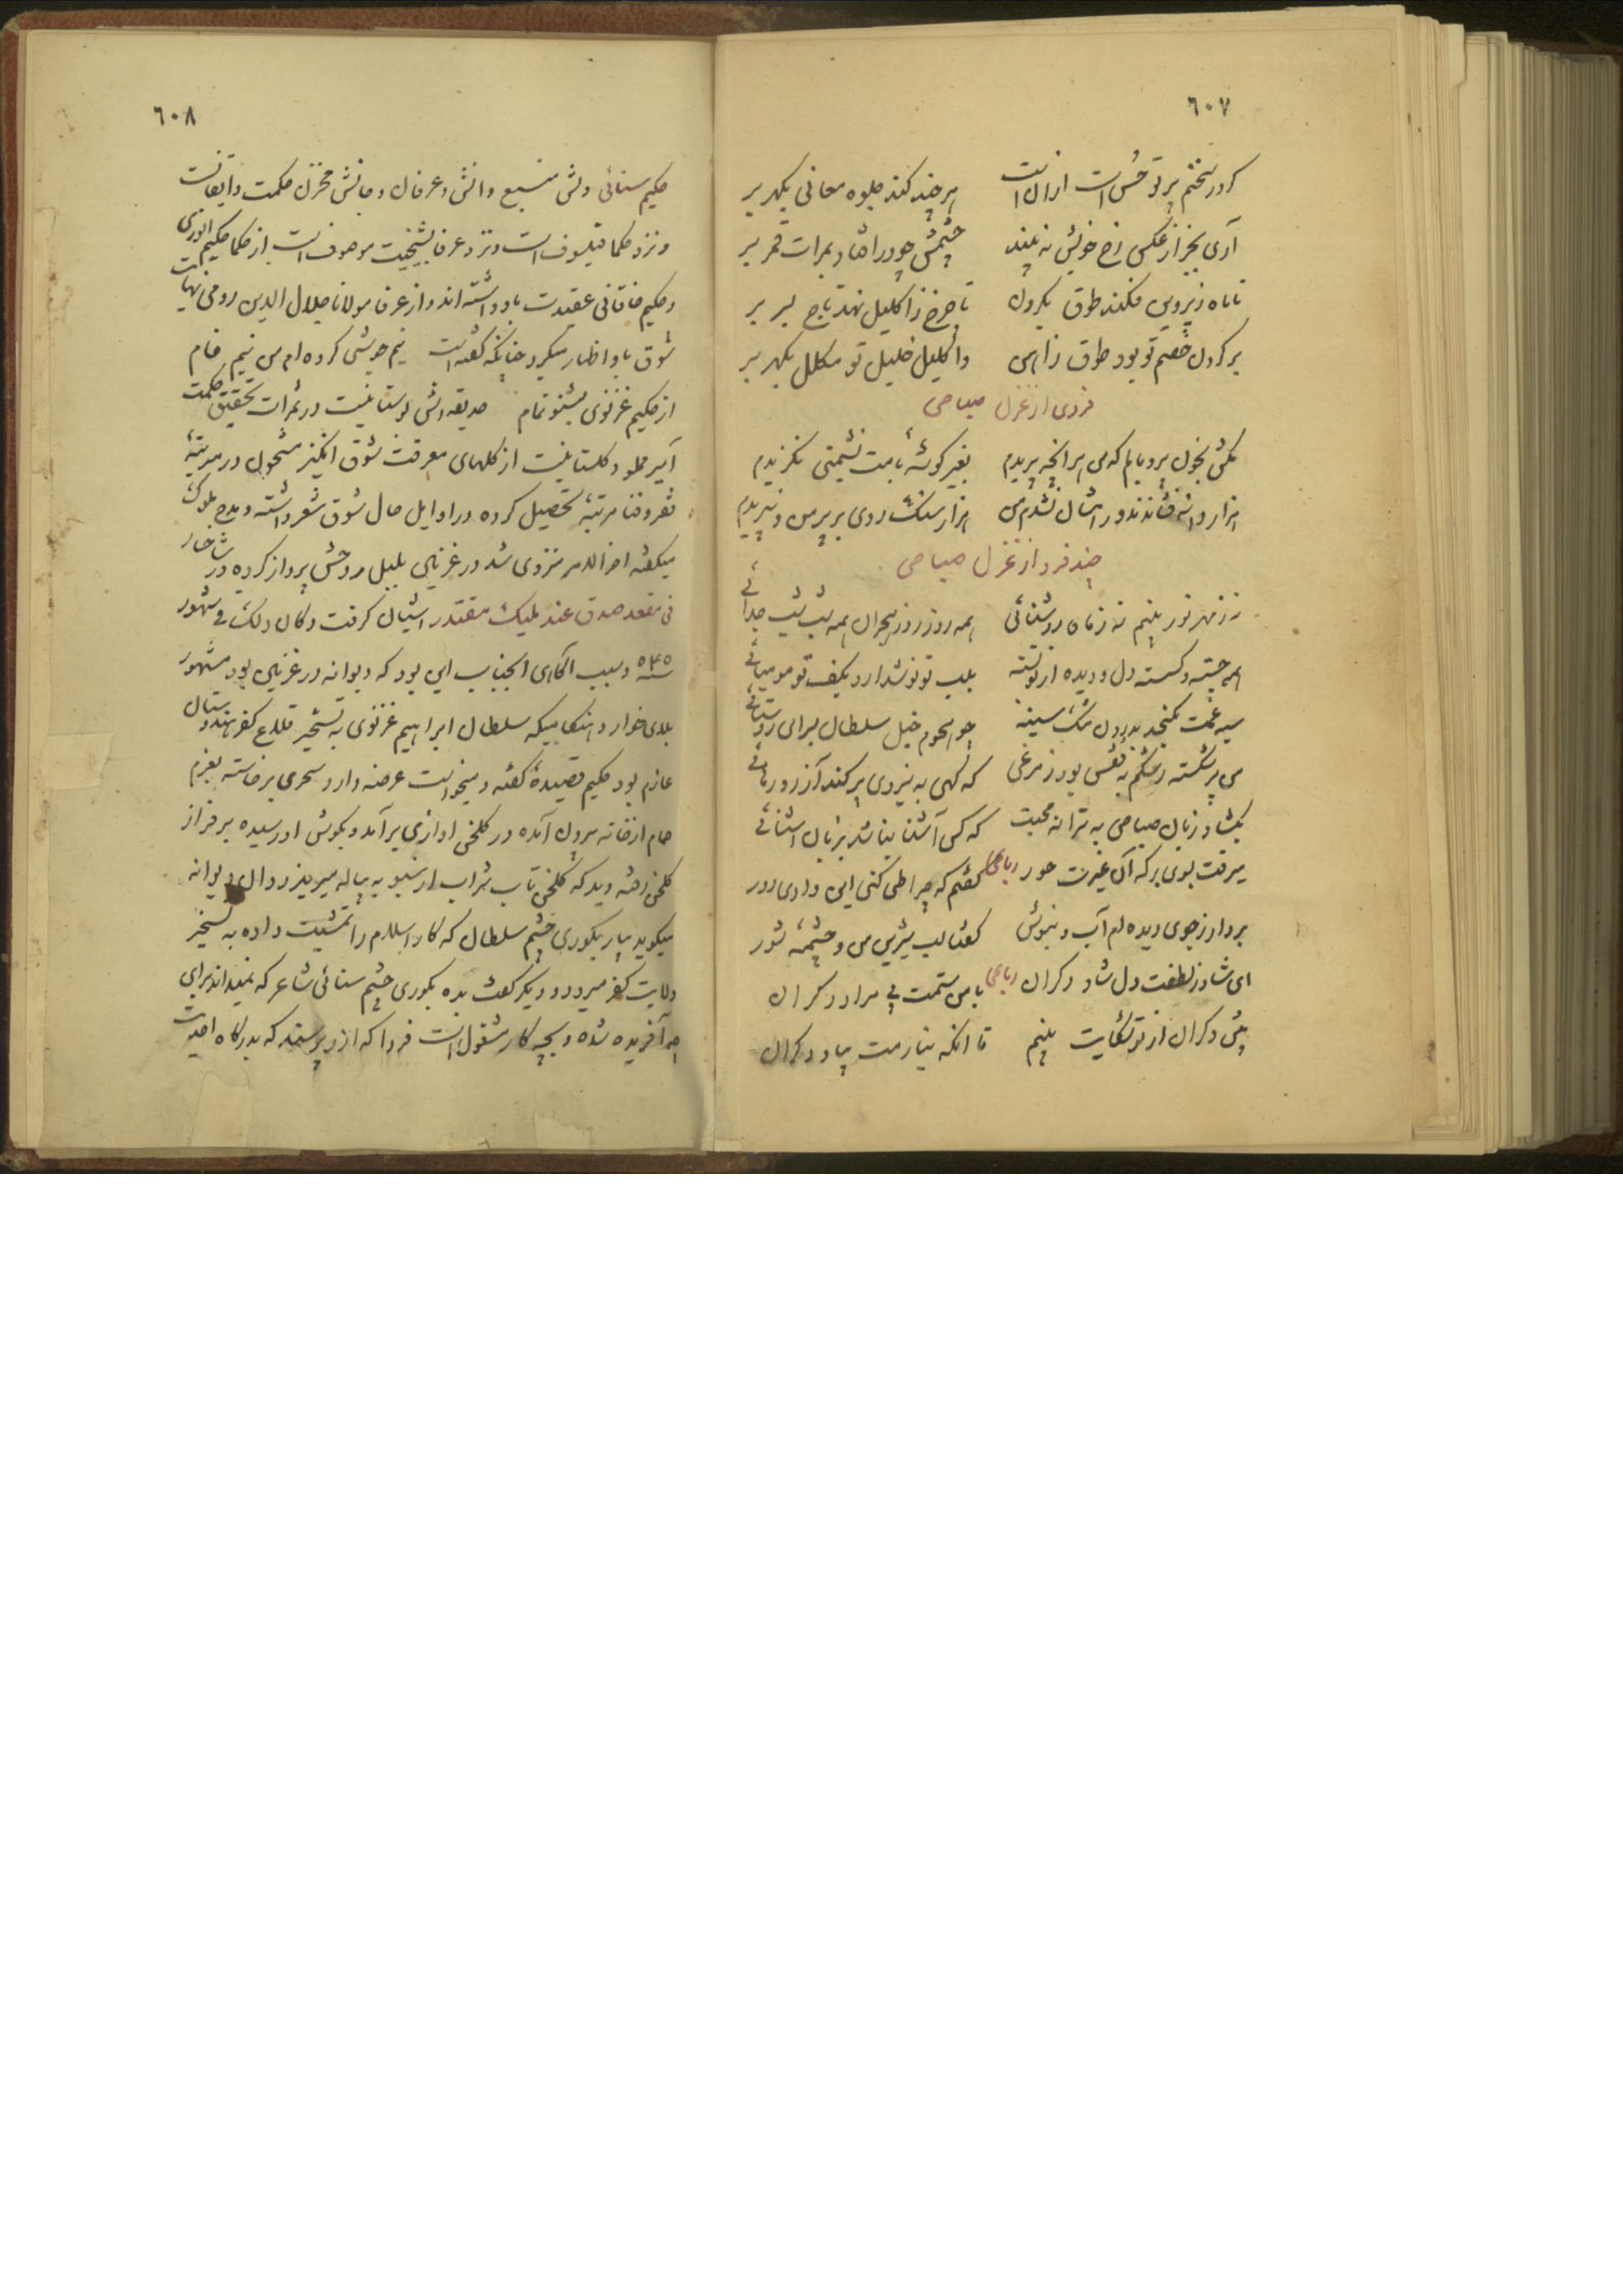 ٦٠٧
کر در سخنم پرتو حسن است از آن است هر چند کند جلوه معانی بگهر بر
آری بجز از عکس رخ خویش نه بیند چشمش چو در افتاد بمرات قمر بر
تا ماه ز پروین فکند طوق بگردن تا چرخ ز اکلیل نهد تاج بسر بر
بر گردن خصم تو بود طوق ز آهن و اکلیل خلیل تو مکلل بگهر بر
فردی از غزل صباحی
مکش بخون پر و بالم که من هر آنچه پریدم بغیر گوشهٔ بامت نشیمنی نگزیدم
هزار دانه فشاندند و رامشان نشدم من هزار سنگ زدی بر پر من و نپریدم
چند فرد از غزل صباحی
نه ز مهر نور بینم نه ز ماه روشنائی همه روز روز هجران همه شب شب جدائی
همه خسته و گسسته دل و دیده از تو بسته بلب تو نوشدارو بکف تو مومیائی
سپه غمت نگنجد بدرون تنگ سینه چو هجوم خیل سلطان بسرای روستائی
من پر شکسته رشکم به قفس بود ز مرغی که گهی به نیروی پر کند آرزو رهائی
بگشاد زبان صباحی به ترانه محبت که کس آشنا نباشد بزبان آشنائی
میرفت بوی برکه آن غیرت حور رباعی گفتم که چرا طی کنی این وادی دور
بردار ز جوی دیده‌ام آب و بنوش گفتا لب شیرین من و چشمهٔ شور
ای شاد ز لطفت دل شاد دگران رباعی با من ستمت پی مراد دگران
پیش دگران از تو شکایت بینم تا آنکه نیارمت بیاد دگران
٦٠٨
حکیم سنائی دلش منبع دانش و عرفان و جانش مخزن حکمت و ایقانست
و نزد حکما فیلسوف است و نزد عرفا بشیخیت موصوف است از حکما حکیم انوری
و حکیم خاقانی عقیدت باو داشته‌اند و از عرفا مولانا جلال الدین رومی نهایت
شوق باو اظهار میکرد چنانکه گفته است نیم جوشی کرده‌ام من نیم خام
از حکیم غزنوی بشنو تمام حدیقه‌اش بوستانیست در ثمرات تحقیق حکمت
آمیز مملو و گلستانیست از گلهای معرفت شوق انگیز مشحون در مرتبهٔ
فقر و فنا مرتبهٔ تحصیل کرده در اوایل حال شوق شعر داشته و مدح ملوک
میگفته اخر الامر منزوی شد در غزنین بلبل روحش پرواز کرده در شاخسار
فی مقعد صدق عند ملیک مقتدر آشیان گرفت و کان ذلک فی شهور
سنه ۵۴۵ و سبب آگاهی انجناب این بود که دیوانه در غزنین بود مشهور
بلای خوار و هنگامیکه سلطان ابراهیم غزنوی به تسخیر قلاع کفر هندوستان
عازم بود حکیم قصیدهٔ گفته و میخواست عرضه دارد سحری برخاسته بعزم
حمام از خانه بیرون آمده در گلخن اوازی برآمد و بگوش او رسیده بر فراز
گلخن رفته دید که گلخن تاب شراب از سبو به پیاله میریزد و آن دیوانه
میگوید بیار بکوری چشم سلطان که کار اسلام را تمشیت داده به تسخیر
ولایت کفر میرود و دیگر گفت بده بکوری چشم سنائی شاعر که نمیداند برای
چه آفریده شده و بچه کار مشغول است فردا که از و پرسند که بدرگاه احدیت